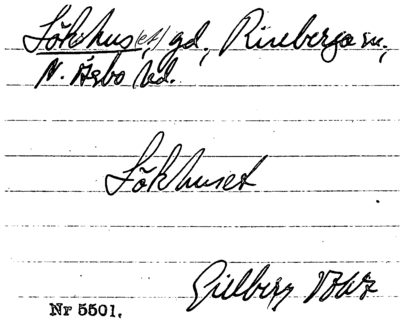 Lökhus(et) gd., Riseberga sn.,
N. Åsbo hd.
Lökhuset
Gillberg
Nr 5501.